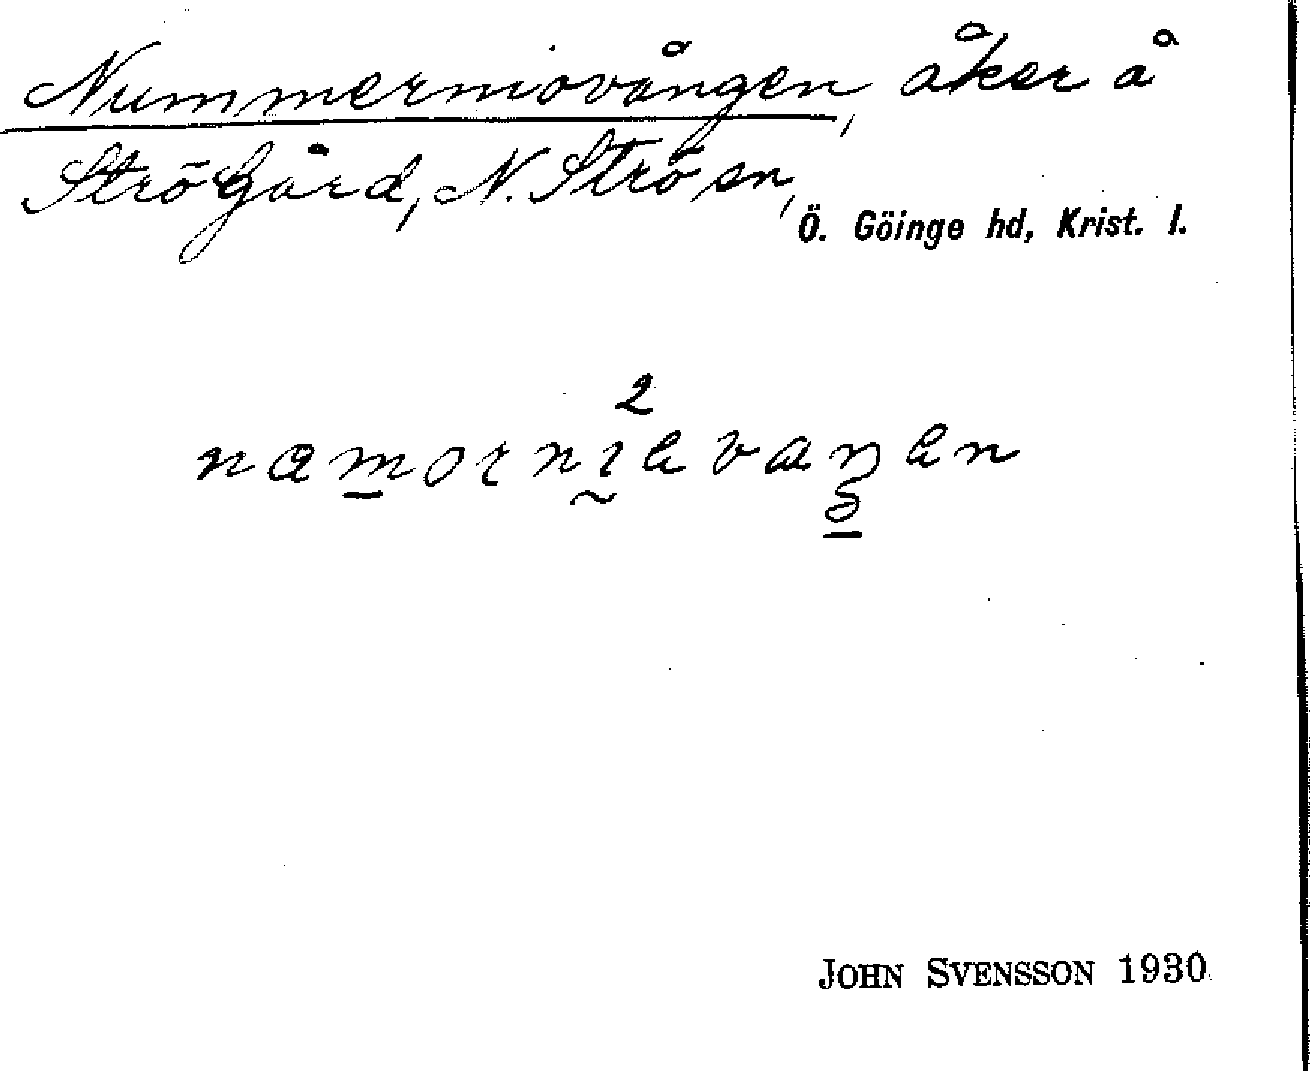 Nummerniovången, åker å
Strö Gård, N. Strö sn,
Ö. Göinge hd, Krist. l.
2
JOHN SVENSSON 1930